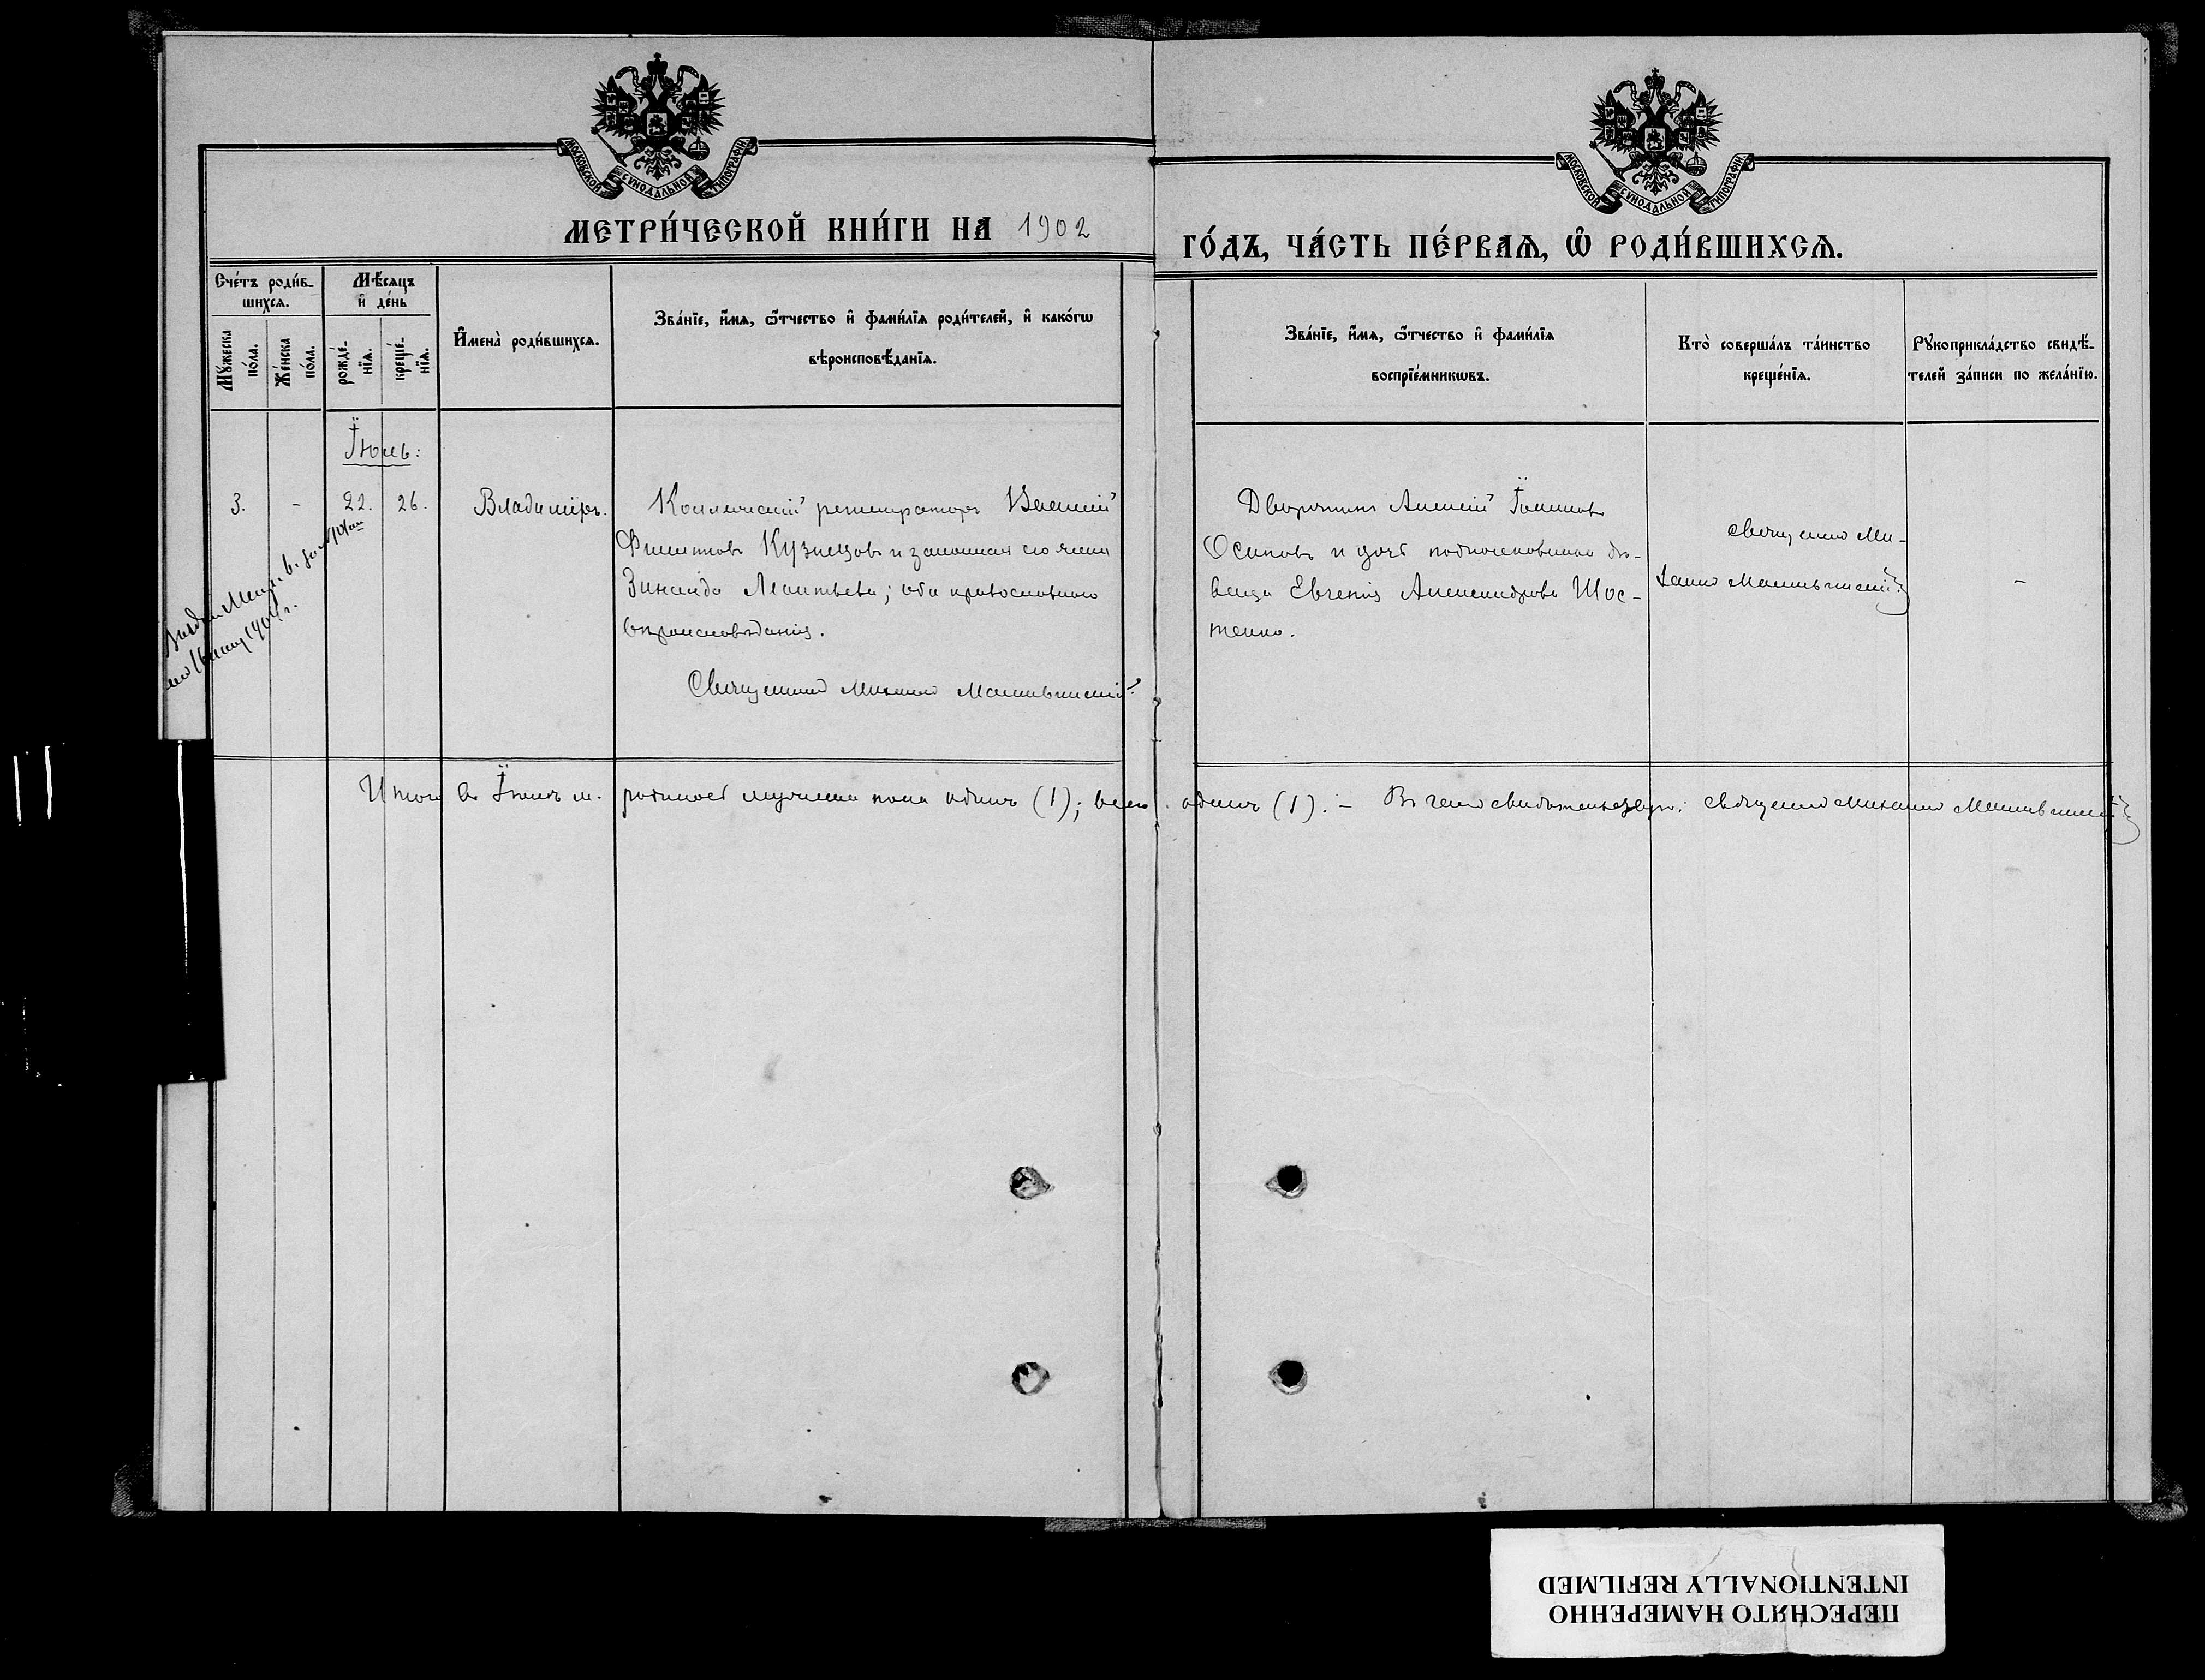 МОСКОВСКОЙ СѴНОДАЛЬНОЙ ТИПОГРАФІИ
МОСКОВСКОЙ СѴНОДАЛЬНОЙ ТИПОГРАФІИ
МЕТРИ́ЧЕСКОЙ КНИ́ГИ НА 1902
ГО́ДЪ, ЧА́СТЬ ПЕ́РВАѦ, Ѡ҆ РОДИ́ВШИХСѦ.
Сче́тъ роди́в-
шихсѧ.
Мꙋ́жеска
по́ла.
Же́нска
по́ла.
Мѣ́сѧцъ
и҆ де́нь
рожде́-
нїѧ.
креще́-
нїѧ.
И҆мена̀ роди́вшихсѧ.
Зва́нїе, и҆́мѧ, ѻ҆́тчество и҆ фами́лїѧ роди́телей, и҆ како́гѡ
вѣроисповѣ́данїѧ.
Зва́нїе, и҆́мѧ, ѻ҆́тчество и҆ фами́лїѧ
воспрїе́мникѡвъ.
Кто̀ соверша́лъ та́инство
креще́нїѧ.
Рꙋкоприкла́дство свидѣ́-
телей за́писи по жела́нїю.
Іюль:
3. - 22. 26. Владиміръ.
Коллежскій регистраторъ Василій
Филиповъ Кузнецовъ и законная его жена
Зинаида Леонтьева; оба православного
вѣроисповѣданія.
Священникъ Михаилъ
Дворянинъ Алексій Іоанновъ
Осиповъ и дочь подполковника дѣ-
вица Евгенія Александрова Шос-
тенко.
священникъ Ми-
хаилъ
-
Итого въ Іюлѣ м. родилось мужеска пола одинъ (1); всего одинъ (1). – Въ чемъ свидѣтельствую: священникъ Михаилъ
ПЕРЕСНЯТО НАМЕРЕННО
INTENTIONALLY REFILMED